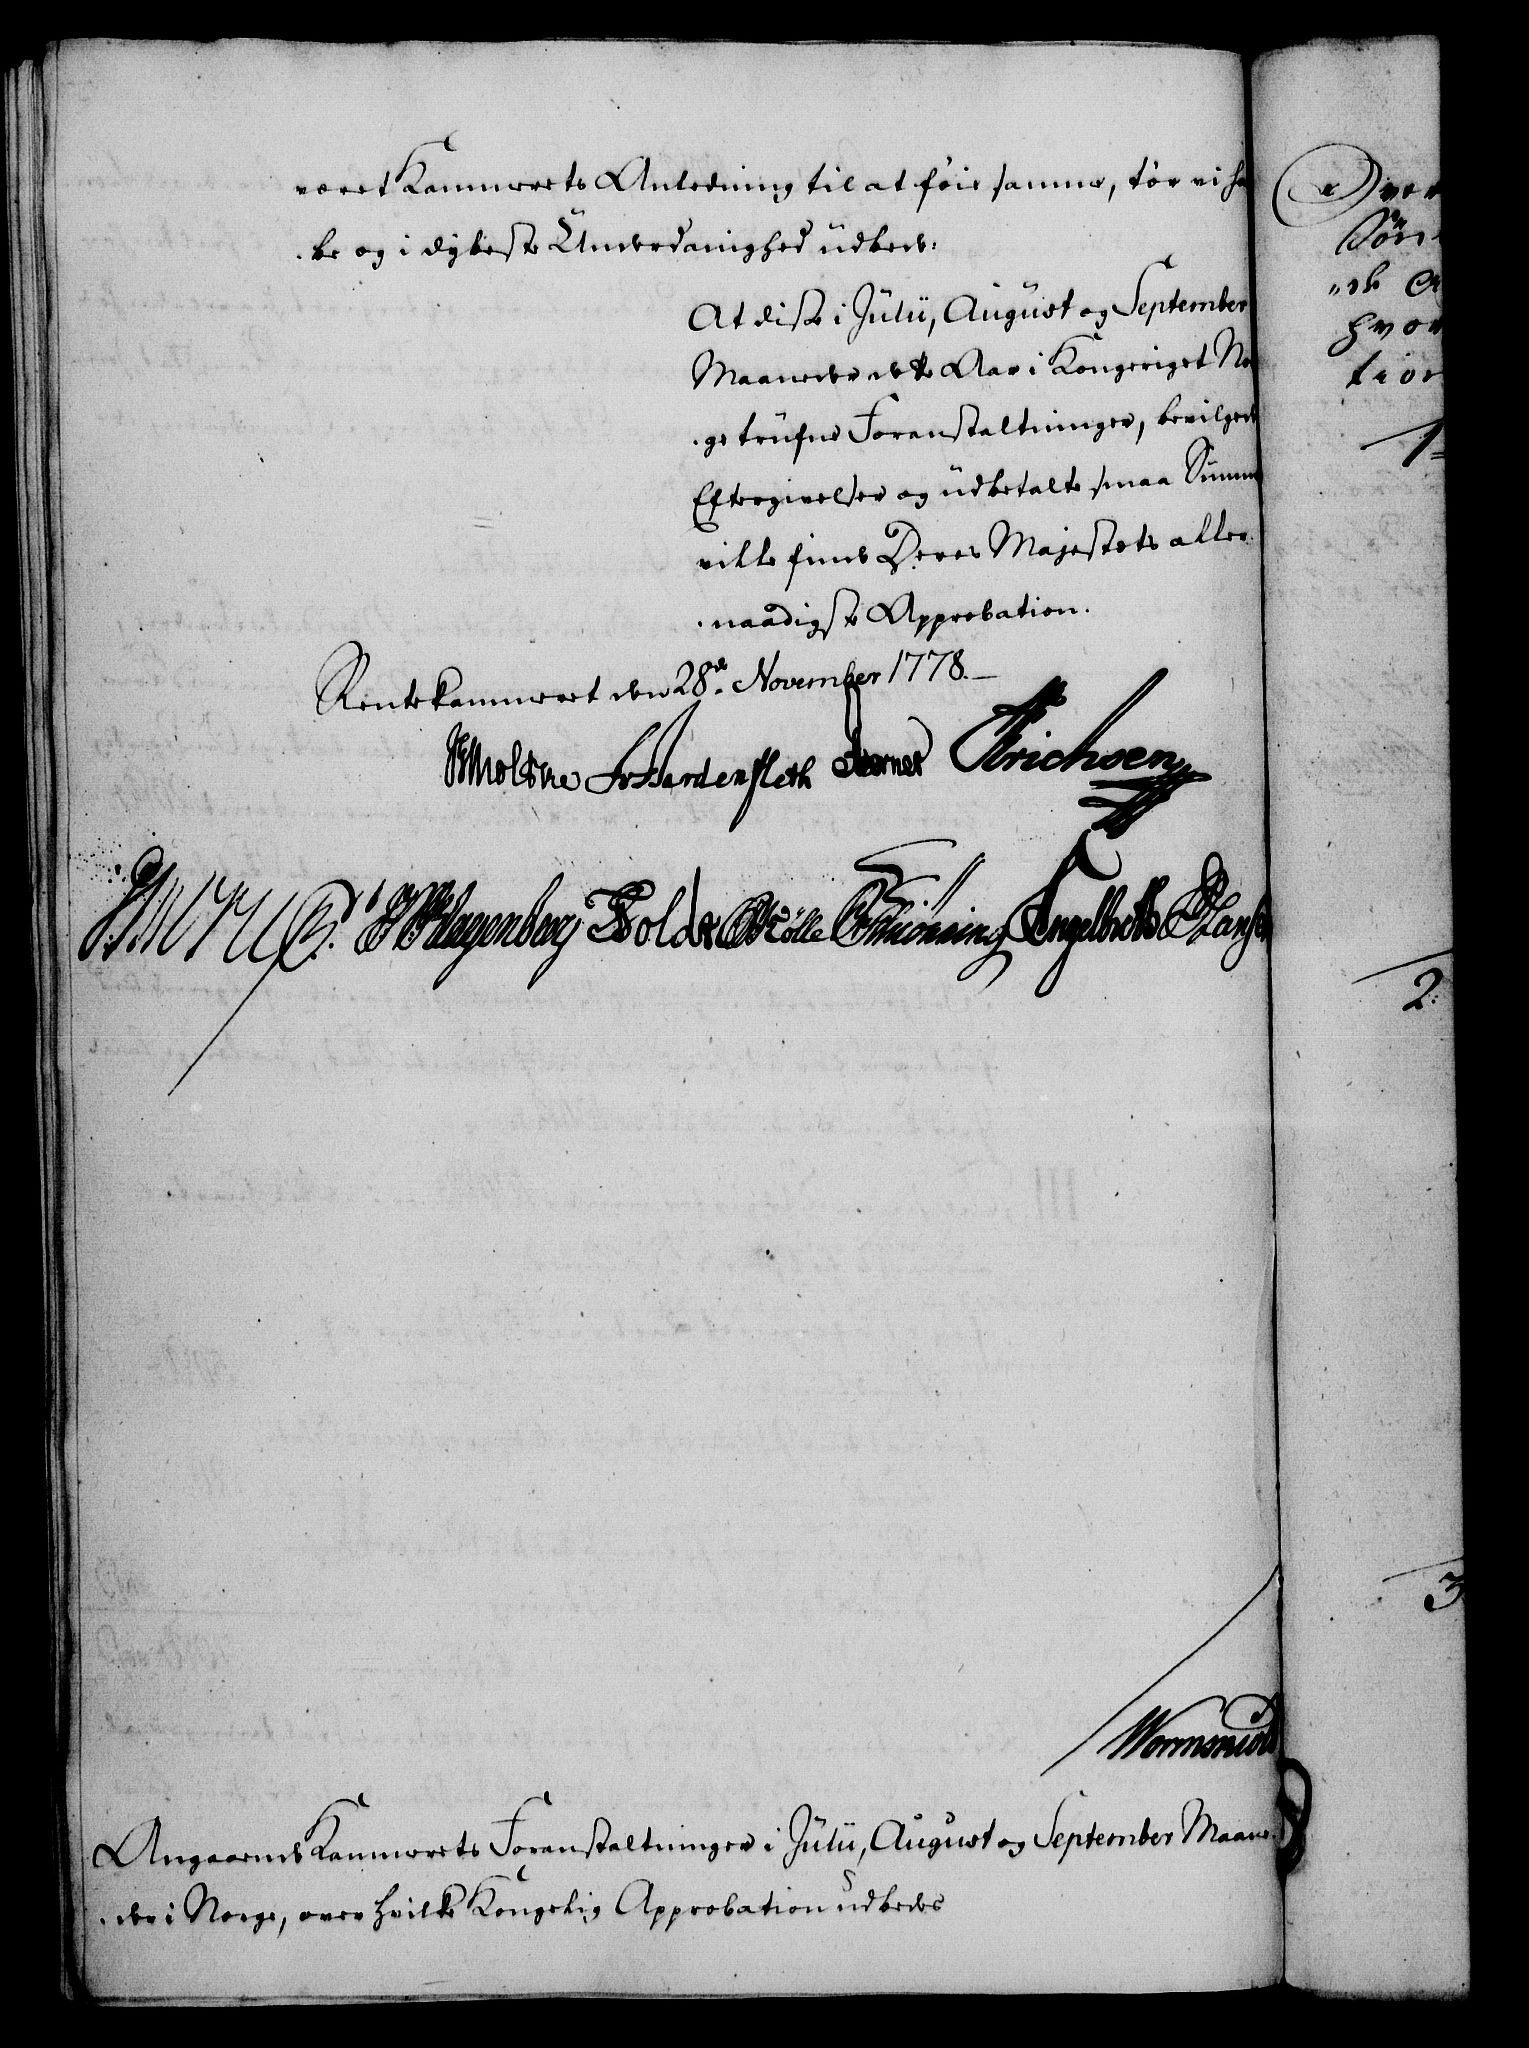 været Kammerets Anledning til at føie samme, tør vi ha
be og i dybeste Underdanighed udbede:
At disse i Julii, August og September
Maaneder dette Aar i Kongeriget No
ge trufne Foranstaltninger, bevilgede
Eftergivelser og udbetalte smaa Summ
ville finde Deres Majestets aller
naadigste Approbation.
Rentekammeret den 28de November 1778.
Hardenfleth Erichsen
Klagenberg Holde Mølle Schiønning Engelbreth Hansen
Wormskiold
Angaaende Kammerets Foranstaltninger i Julii, August og September Maane
der i Norge, over hvilke Kongelig Approbation udbedes
Over
hvor
tion
1
2
3